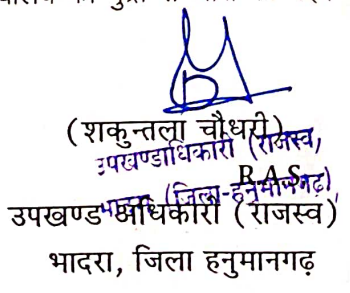 (शकुन्तला चौधरी)
उपखण्डाधिकारी (राजस्व)
R.A.S.
भादरा (जिला-हनुमानगढ़)
उपखण्ड अधिकारी (राजस्व)
भादरा, जिला हनुमानगढ़